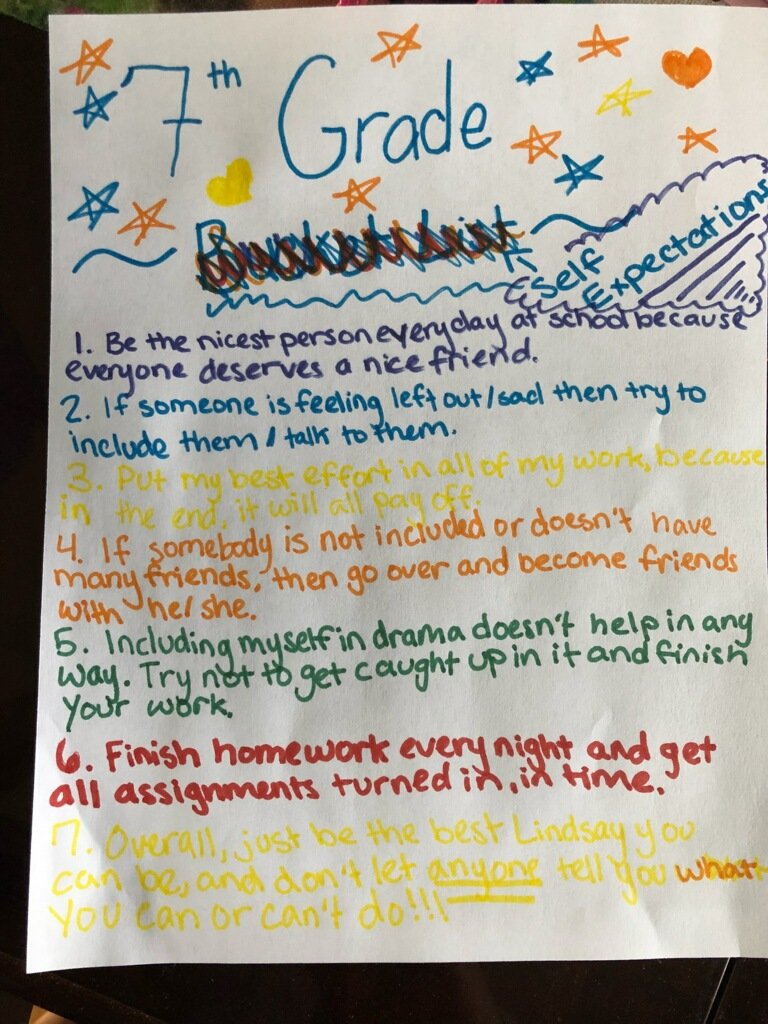 7th Grade
Bucket List
Self
Expectations
1. Be the nicest person everyday at school because
everyone deserves a nice friend.
2. If someone is feeling left out/sad then try to
include them / talk to them.
3. Put my best effort in all of my work, because
in the end, it will all pay off.
4. If somebody is not included or doesn't have
many friends, then go over and become friends
with he/she.
5. Including myself in drama doesn't help in any
way. Try not to get caught up in it and finish
your work.
6. Finish homework every night and get
all assignments turned in, in time.
7. Overall, just be the best Lindsay you
can be, and don't let anyone tell you what
you can or can't do!!!